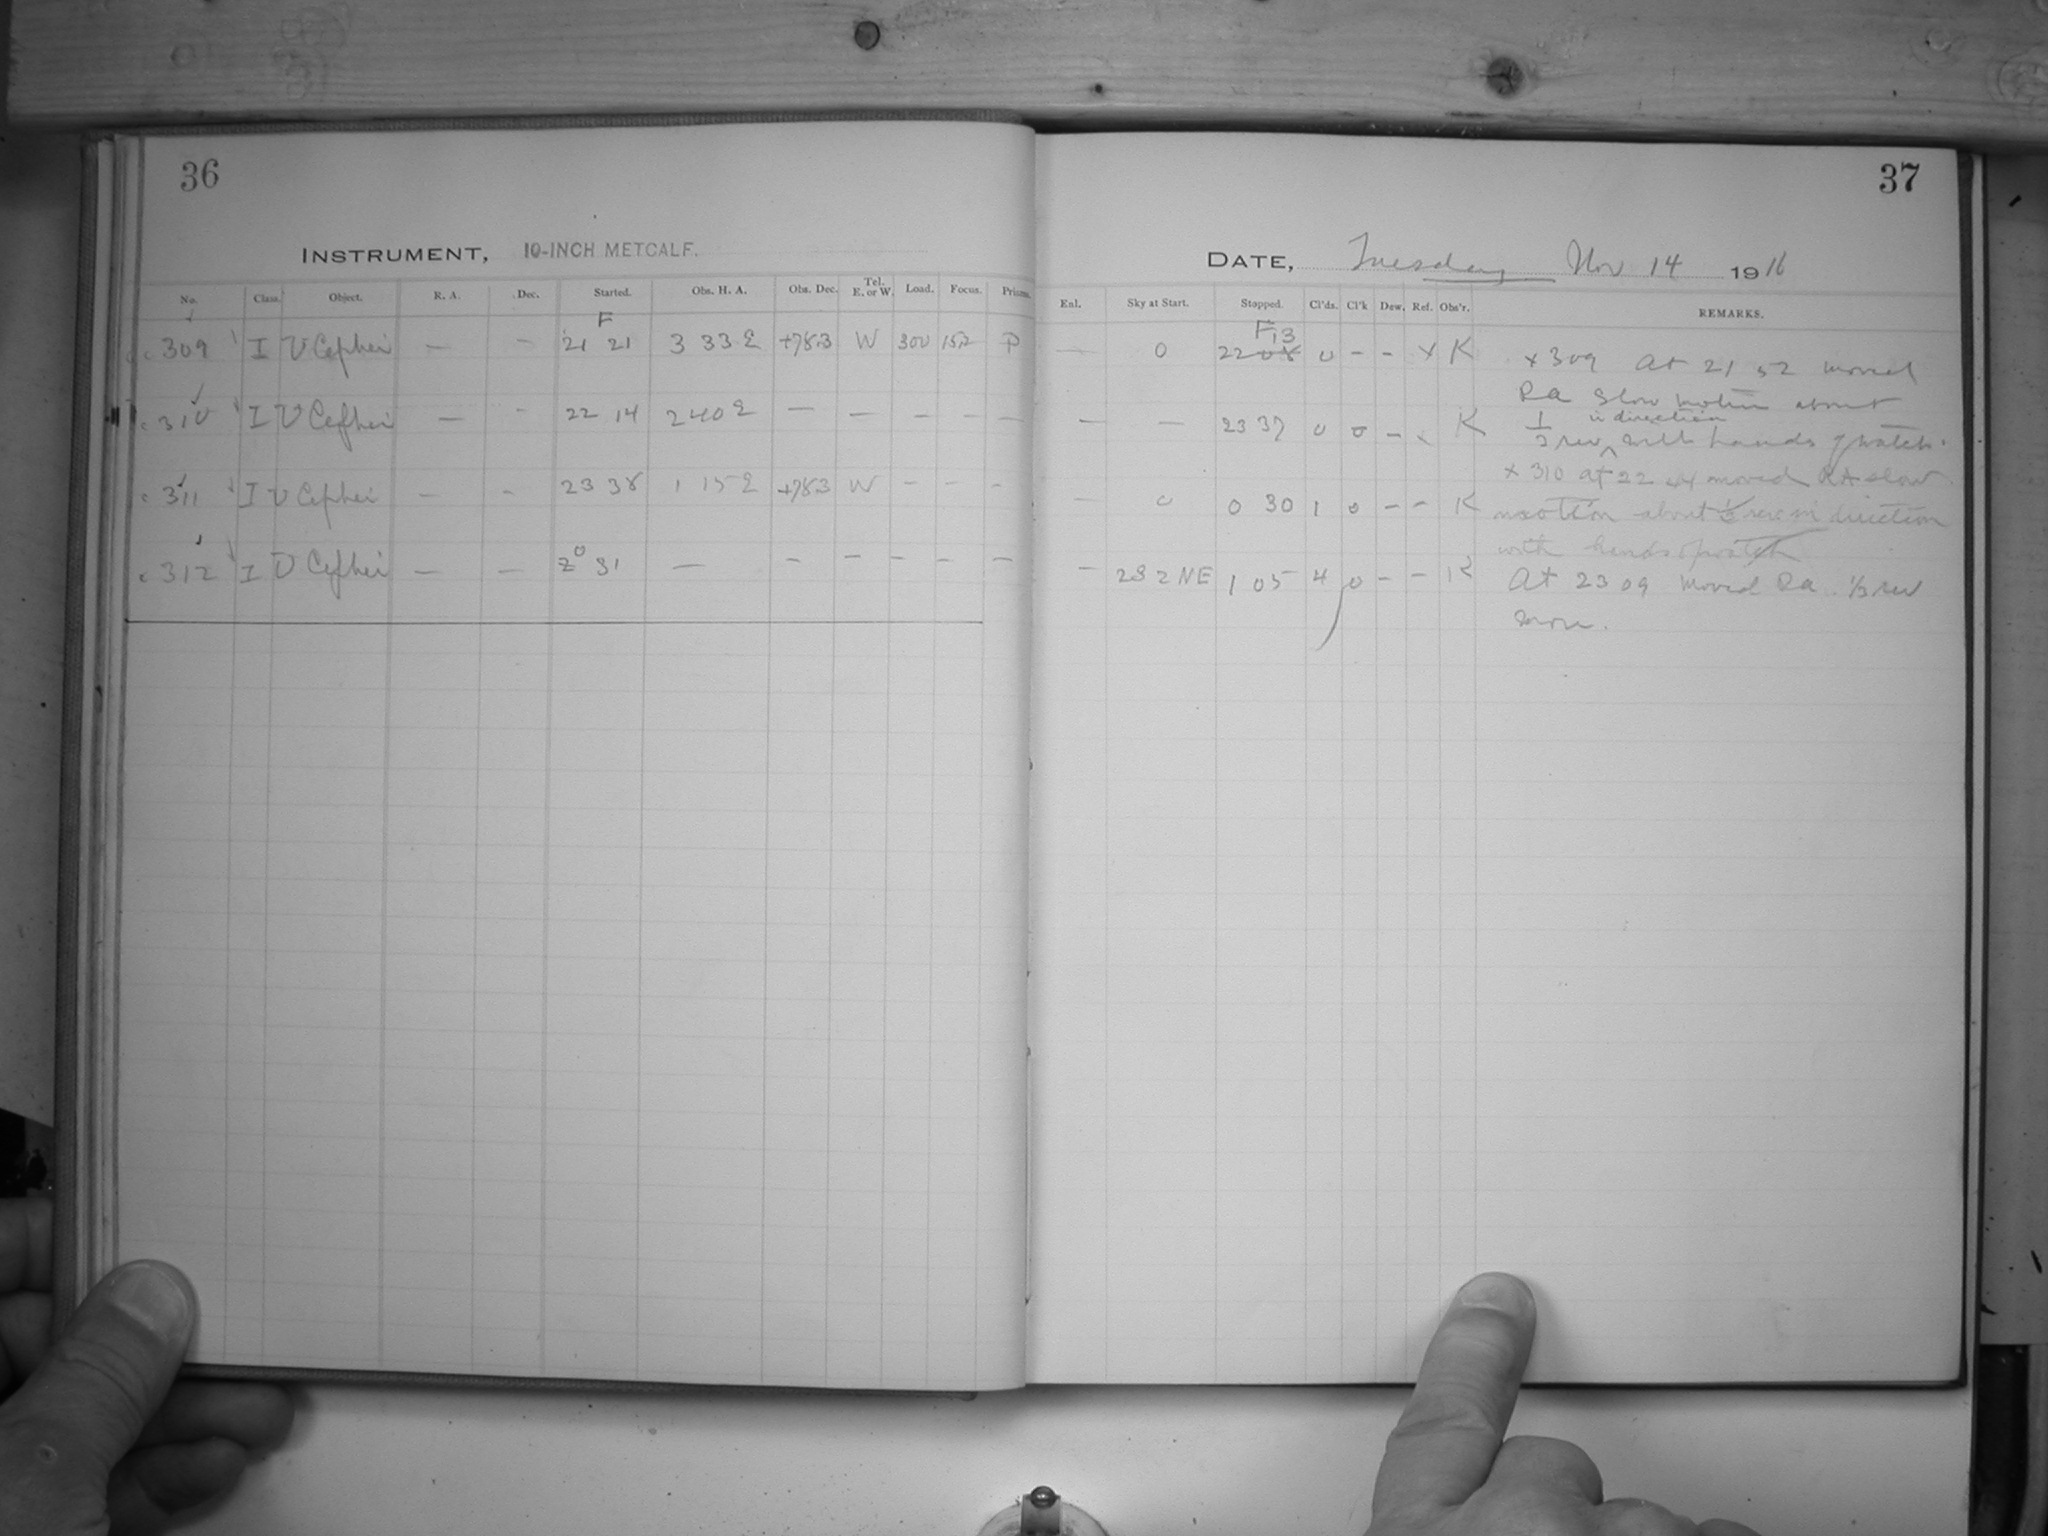 36
INSTRUMENT, 10-INCH METCALF.
No. Class. Object. R. A. Dec. Started. Obs. H. A. Obs. Dec. Tel. E. or W. Load. Focus. Prism.
F
c 309 I U Cephei — - 21 21 3 33 E +78.3 W 300 15.2 P
c 310 I U Cephei — - 22 14 2 40 E — — — — —
c 311 I U Cephei - - 23 38 1 15 E +78.3 W - - -
c 312 I U Cephei — — 0 31 — - — - - —
37
DATE, Tuesday Nov 14 1916
Enl. Sky at Start. Stopped. Cl'ds. Cl'k Dew. Ref. Obs'r. REMARKS.
F 13
— 0 22 08 0 - - x K
— — 23 37 0 0 - x K
— 0 0 30 1 0 - - K
- 2S 2NE 1 05 4 0 - - K
x 309 at 21 52 moved
Ra slow motion about
1/2 rev in direction with hands of watch.
x 310 at 22 44 moved RA slow
motion about rev in direction
with hands of watch
At 23 09 moved Ra 1/3 rev
more.